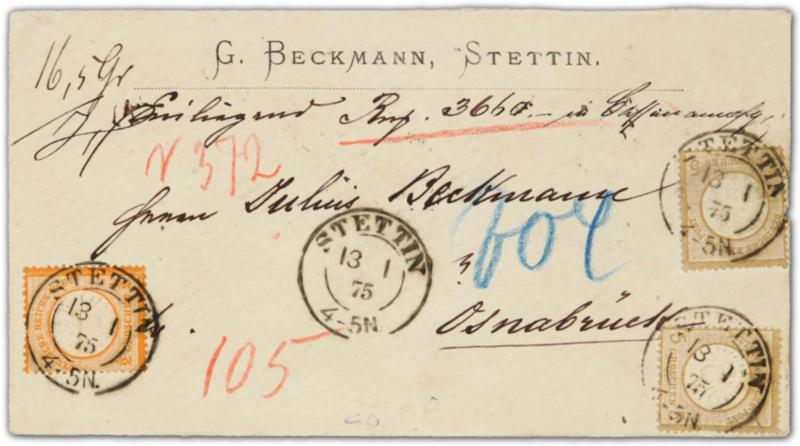 G. BECKMANN, STETTIN.
16,5 Gr
Einliegend 3660.– in
N 372
Herrn Julius Beckmann
STETTIN
13 1
75
4-5N.
STETTIN
13 1
75
4-5N.
Osnabrück
STETTIN
13 1
75
4-5N.
105
STETTIN
13 1
75
4-5N.
5
GROSCHEN